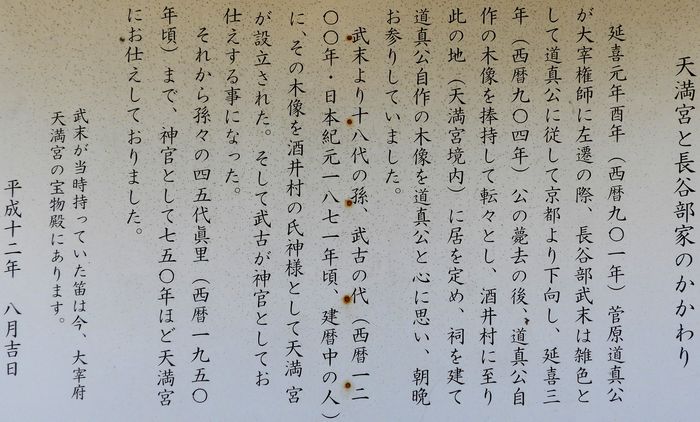 天満宮と長谷部家のかかわり
延喜元年酉年（西暦九〇一年）菅原道真公
が大宰権師に左遷の際、長谷部武末は雑色と
して道真公に従して京都より下向し、延喜三
年（西暦九〇四年）公の薨去の後、道真公自
作の木像を捧持して転々とし、酒井村に至り
此の地（天満宮境内）に居を定め、祠を建て
道真公自作の木像を道真公と心に思い、朝晩
お参りしていました。
武末より十八代の孫、武古の代（西暦一二
〇〇年・日本紀元一八七一年頃、建暦中の人）
に、その木像を酒井村の氏神様として天満宮
が設立された。そして武古が神官としてお
仕えする事になった。
それから孫々の四五代眞里（西暦一九五〇
年頃）まで、神官として七五〇年ほど天満宮
にお仕えしておりました。
武末が当時持っていた笛は今、大宰府
天満宮の宝物殿にあります。
平成十二年　八月吉日